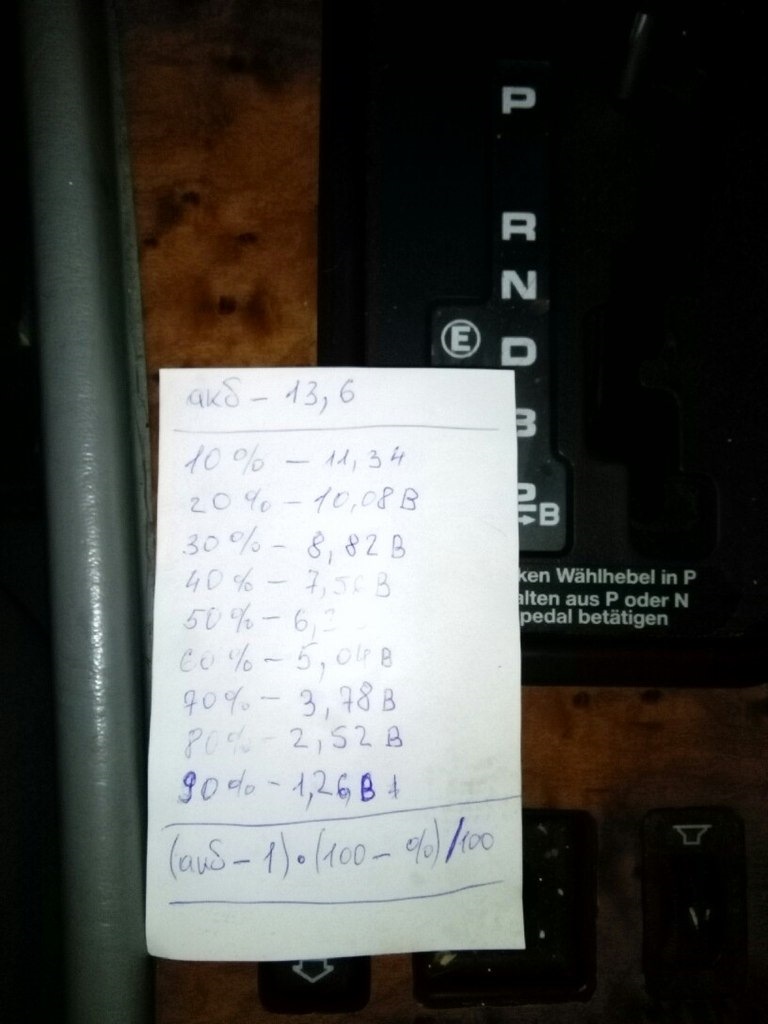 P
R
N
E D
B
акб – 13,6
10% – 11,34
20% – 10,08 В
30% – 8,82 В
40% – 7,56 В
50% – 6,
60% – 5,04 В
70% – 3,78 В
80% – 2,52 В
90% – 1,26 В
(акб – 1) • (100 – %) / 100
B
ken Wählhebel in P
alten aus P oder N
pedal betätigen